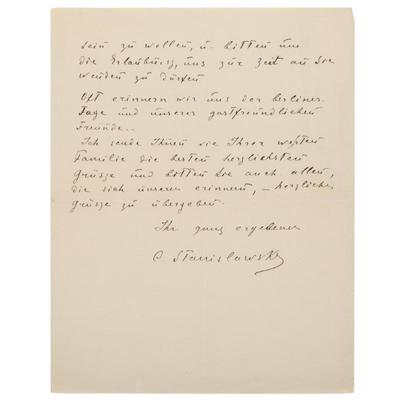 sein zu wollen, u. bitten um
die Erlaubniss, uns zur Zeit an Sie
wenden zu dürfen
Oft erinnern wir uns der berliner
Tage und unserer gastfreundlichen
Freunde..
Ich sende Ihnen wie Ihrer werten
Familie die besten herzlichsten
Grüsse und bitten Sie auch allen,
die sich unserer erinnern, – herzliche
Grüsse zu übergeben.
Ihr ganz ergebener
C. Stanislawsky